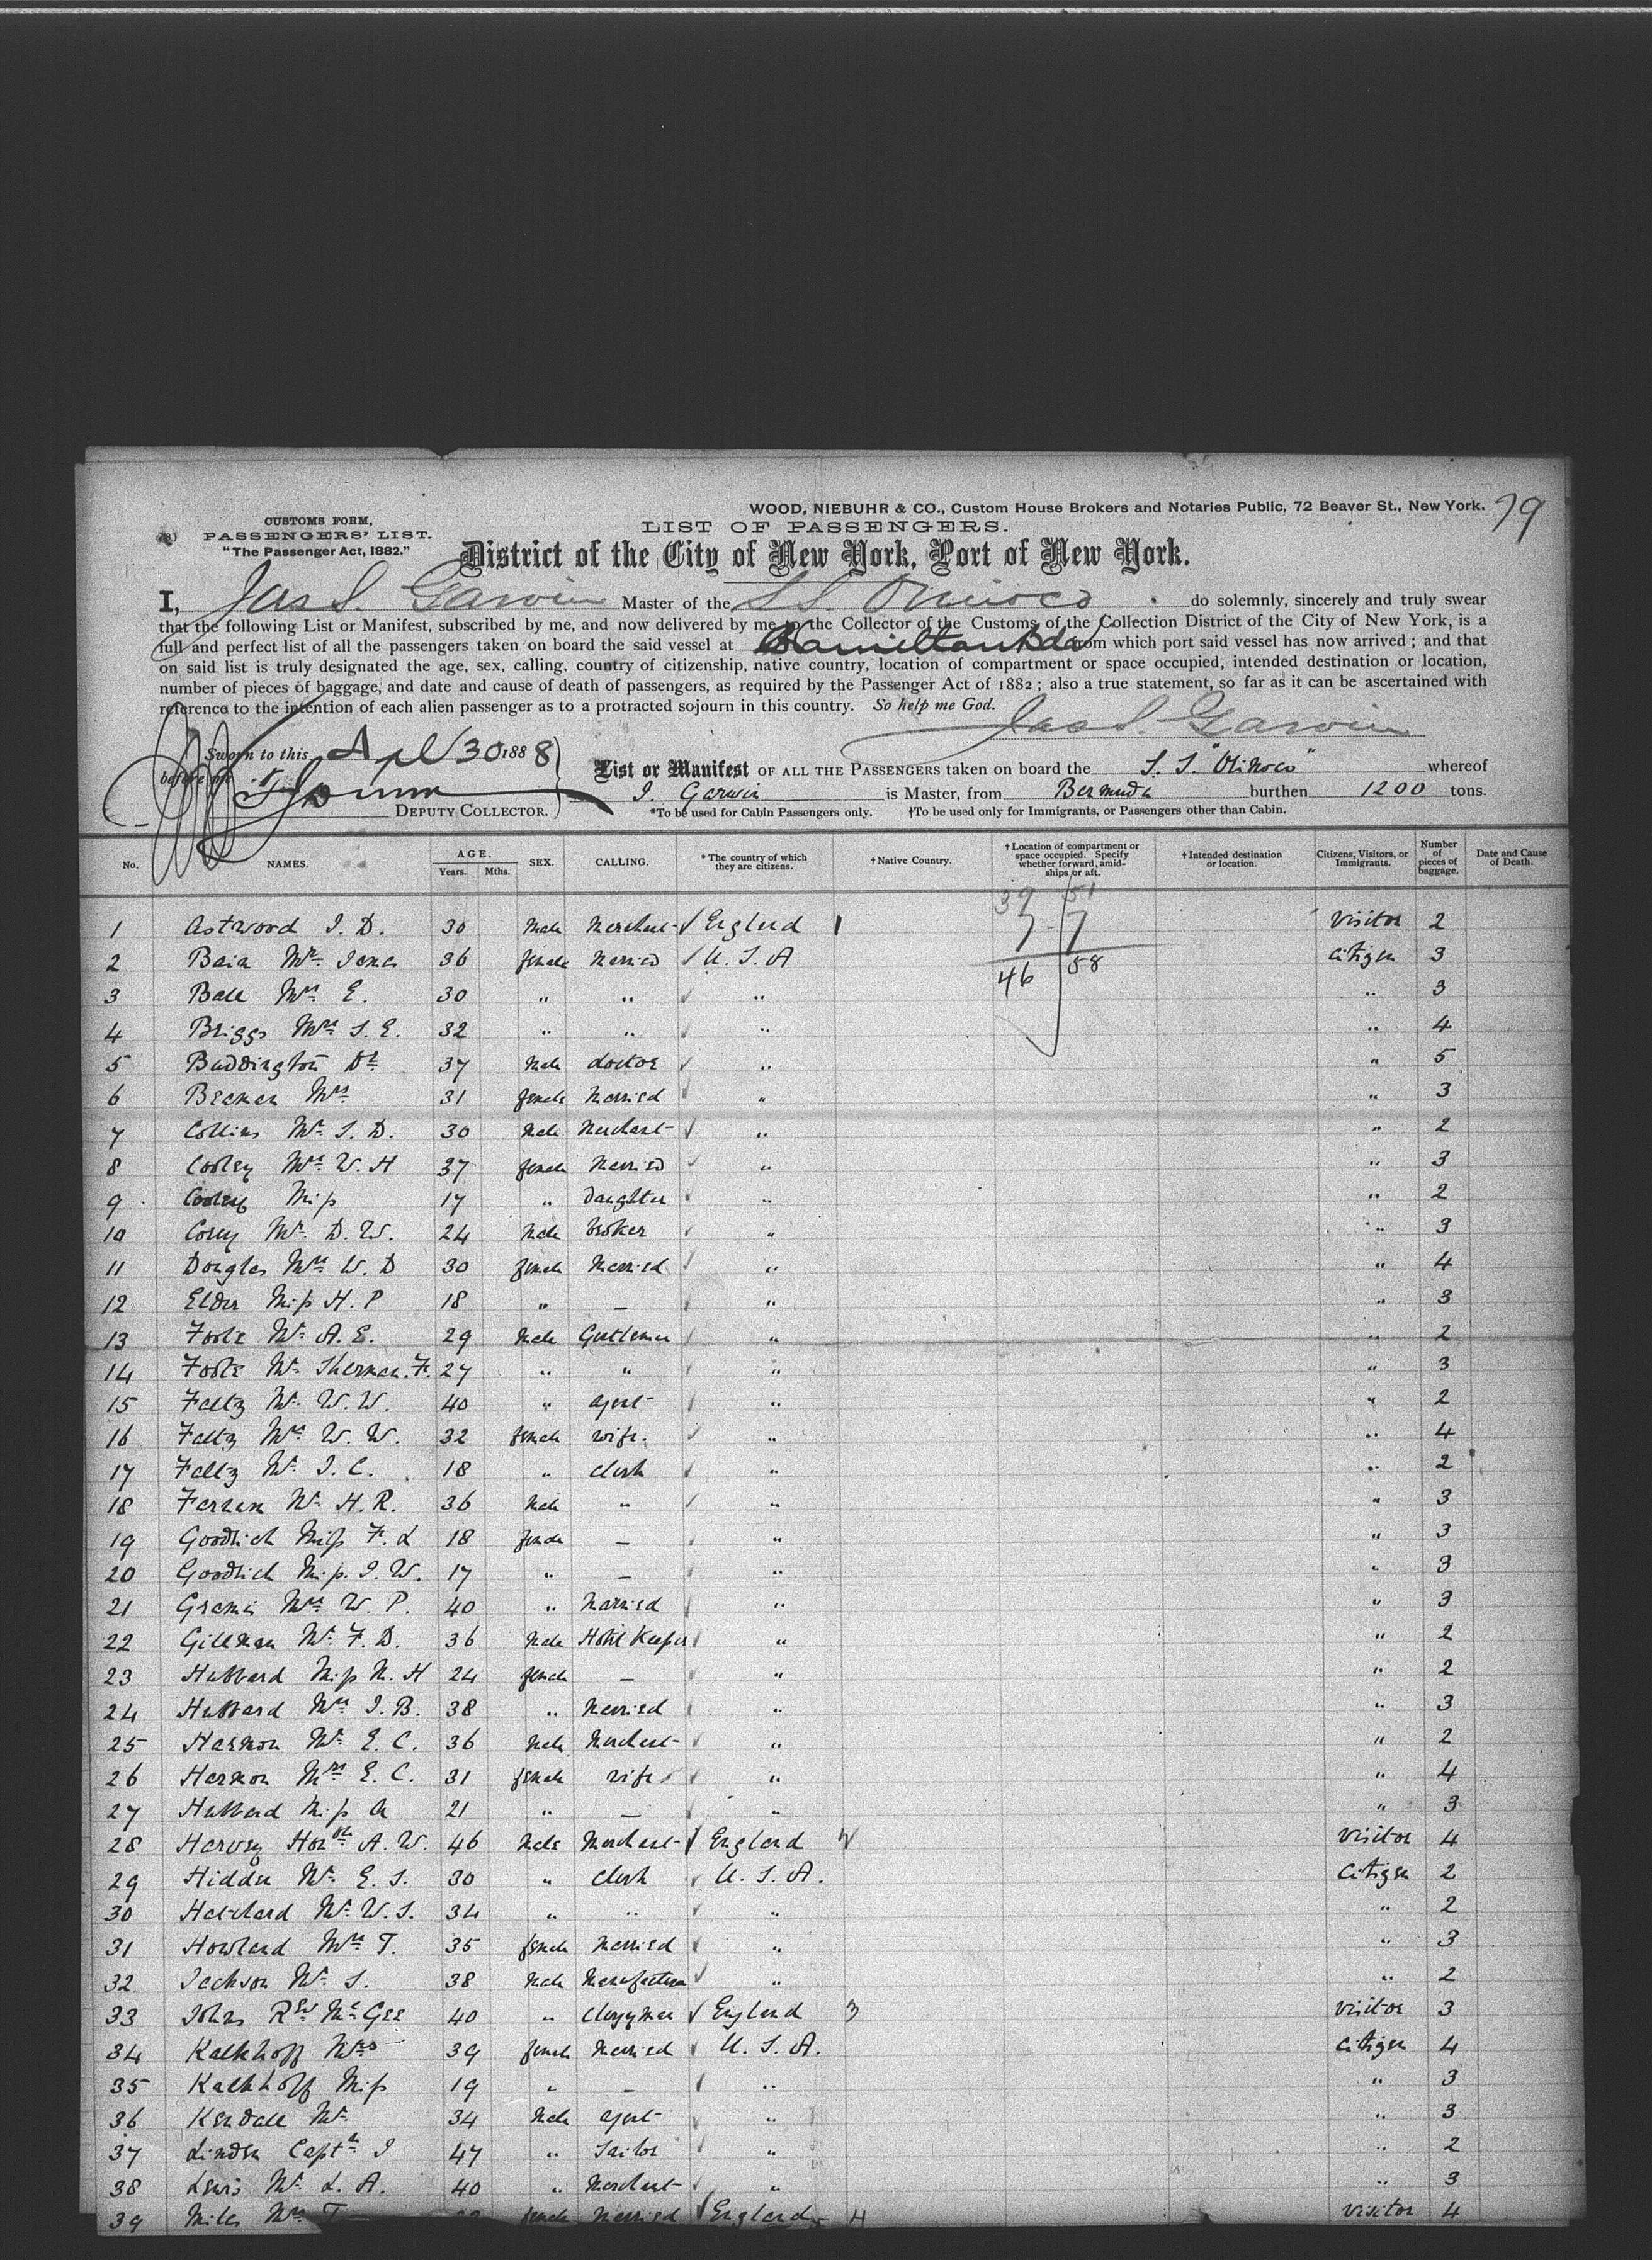 WOOD, NIEBUHR & CO., Custom House Brokers and Notaries Public, 72 Beaver St., New York. 79
CUSTOMS FORM,
PASSENGERS' LIST.
"The Passenger Act, 1882."
LIST OF PASSENGERS.
District of the City of New York, Port of New York.
I, Jas S. Garvin Master of the S.S. Orinoco do solemnly, sincerely and truly swear
that the following List or Manifest, subscribed by me, and now delivered by me to the Collector of the Customs of the Collection District of the City of New York, is a
full and perfect list of all the passengers taken on board the said vessel at Hamilton Bda from which port said vessel has now arrived; and that
on said list is truly designated the age, sex, calling, country of citizenship, native country, location of compartment or space occupied, intended destination or location,
number of pieces of baggage, and date and cause of death of passengers, as required by the Passenger Act of 1882; also a true statement, so far as it can be ascertained with
reference to the intention of each alien passenger as to a protracted sojourn in this country. So help me God.
Jas S. Garvin
Sworn to this Apl 30 1888
before me
DEPUTY COLLECTOR.
List or Manifest OF ALL THE PASSENGERS taken on board the S. S. "Orinoco" whereof
J. Garvin is Master, from Bermuda burthen 1200 tons.
*To be used for Cabin Passengers only. †To be used only for Immigrants, or Passengers other than Cabin.
No. NAMES. AGE. Years. Mths. SEX. CALLING. * The country of which they are citizens. † Native Country. † Location of compartment or space occupied. Specify whether forward, amid-ships or aft. † Intended destination or location. Citizens, Visitors, or Immigrants. Number of pieces of baggage. Date and Cause of Death.
39 51
7 7
46 58
1 Astwood J. D. 30 Male Merchant England 1 Visitor 2
2 Bain Mrs James 36 female Married U. S. A citizen 3
3 Ball Mrs E. 30 " " " " 3
4 Briggs Mrs S. E. 32 " " " " 4
5 Buddington Dr 37 Male doctor " " 5
6 Beaman Mrs 31 female Married " " 3
7 Collins Mr S. D. 30 Male Merchant " " 2
8 Cooley Mrs W. H 37 female Married " " 3
9 Cooley Miss 17 " Daughter " " 2
10 Corey Mr D. W. 24 Male broker " " 3
11 Douglas Mrs W. D 30 female Married " " 4
12 Elder Miss H. P 18 " — " " 3
13 Foote Mr A. E. 29 Male Gentleman " " 2
14 Foote Mr Sherman. F. 27 " " " " 3
15 Feltz Mr W. W. 40 " agent " " 2
16 Feltz Mrs W. W. 32 female wife. " " 4
17 Feltz Mr J. C. 18 " Clerk " " 2
18 Ferren Mr H. R. 36 Male " " " 3
19 Goodrich Miss F. L 18 female — " " 3
20 Goodrich Miss. J. W. 17 " — " " 3
21 Mrs W. P. 40 " Married " " 3
22 Gillman Mr F. D. 36 Male Hotel Keeper " " 2
23 Hubbard Miss M. H 24 female — " " 2
24 Hubbard Mrs J. B. 38 " Married " " 3
25 Harmon Mr E. C. 36 Male Merchant " " 2
26 Harmon Mrs E. C. 31 female wife " " 4
27 Hubbard Miss A 21 " — " " 3
28 Harvey Honble A. W. 46 Male Merchant England 2 visitor 4
29 Hidden Mr E. S. 30 " Clerk U. S. A. Citizen 2
30 Mr W. S. 34 " " " " 2
31 Howland Mrs T. 35 female Married " " 3
32 Jackson Mr S. 38 Male Manufacturer " " 2
33 Johns Revd McGee 40 " Clergyman England 3 visitor 3
34 Kalkhoff Mrs 39 female Married U. S. A. Citizen 4
35 Kalkhoff Miss 19 " — " " 3
36 Kendall Mr 34 Male agent " " 3
37 Linden Captn J 47 " Sailor " " 2
38 Lewis Mr L. A. 40 " Merchant " " 3
39 Miles Mrs T female Married England 4 visitor 4